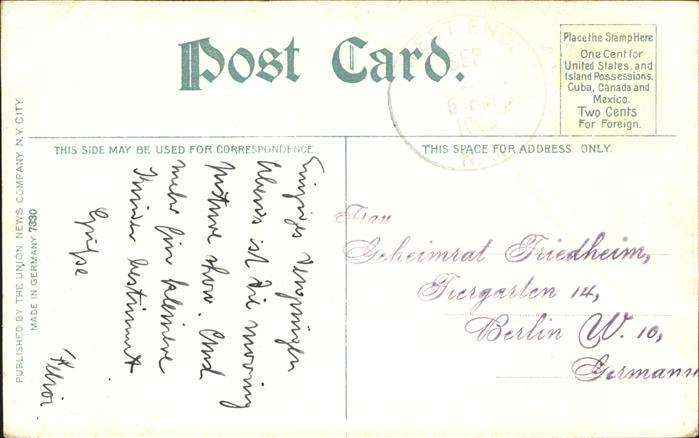 Post Card.
WEST END
SEP
N.J.
Place the Stamp Here
One Cent for
United States, and
Island Possessions,
Cuba, Canada and
Mexico.
Two Cents
For Foreign.
THIS SIDE MAY BE USED FOR CORRESPONDENCE
THIS SPACE FOR ADDRESS ONLY.
PUBLISHED BY THE UNION NEWS COMPANY, N.Y. CITY.
MADE IN GERMANY 7330
Einziges Vergnügen
Abends ist die moving
picture show. Und
mehr für kleinere
Kinder bestimmt
Grüße
Frau
Geheimrat Friedheim,
Tiergarten 14,
Berlin W. 10,
Germany